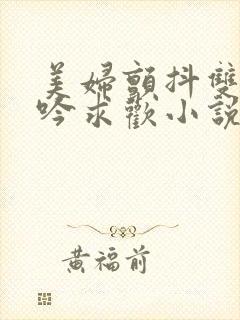 美婦顫抖雙
吟求歡小說
黃福前